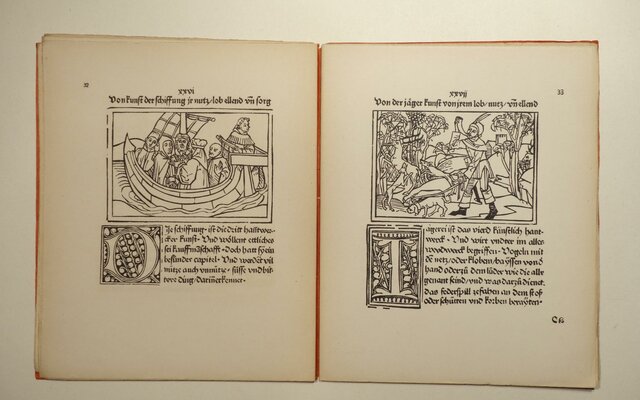 32
xxvi
Von kunst der schiffung jr nutz/lob ellend vñ sorg
Die schiffung · ist die dritt hantwer
cker kunst · Vnd wöllent ettliches
sei kauffmãschafft · doch hatt sy ein
besunder capitel · Vnd werdẽt vil
nütze auch vnnütz · süsse vnd bit
tere ding/darin erkennet ·
33
xxvij
Von der jäger kunst von jrem lob/nutz/vñ ellend
Iagerei ist das vierd künstlich hant
werck · Vnd wirt vndter im alles
woodwerck begriffen · Vogeln mit
dẽ netz/oder kloben/bayssen von d
hand oder zů dem lůder wie die alle
genant seind/vnd was darzů dienet.
das federspill zefahen an dem stoß
oder schütten vnd körben berayten ·